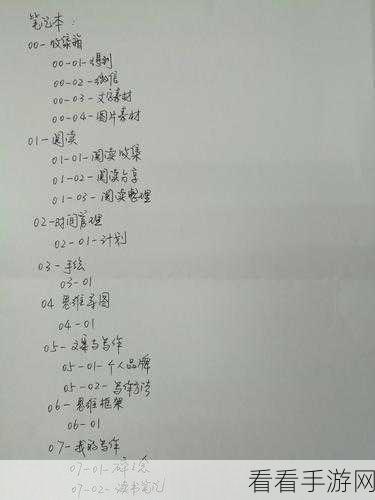 笔记本:
00-收集箱
00-01-得到
00-02-微信
00-03-文字素材
00-04-图片素材
01-阅读
01-01-阅读收集
01-02-阅读分享
01-03-阅读整理
02-时间管理
02-01-计划
03-手绘
03-01
04 思维导图
04-01
05-文案与写作
05-01-个人品牌
05-02-写作方法
06-思维框架
06-01
07-我的写作
07-01-碎碎念
07-02-读书笔记
看看手游网
www.kkssyy.com